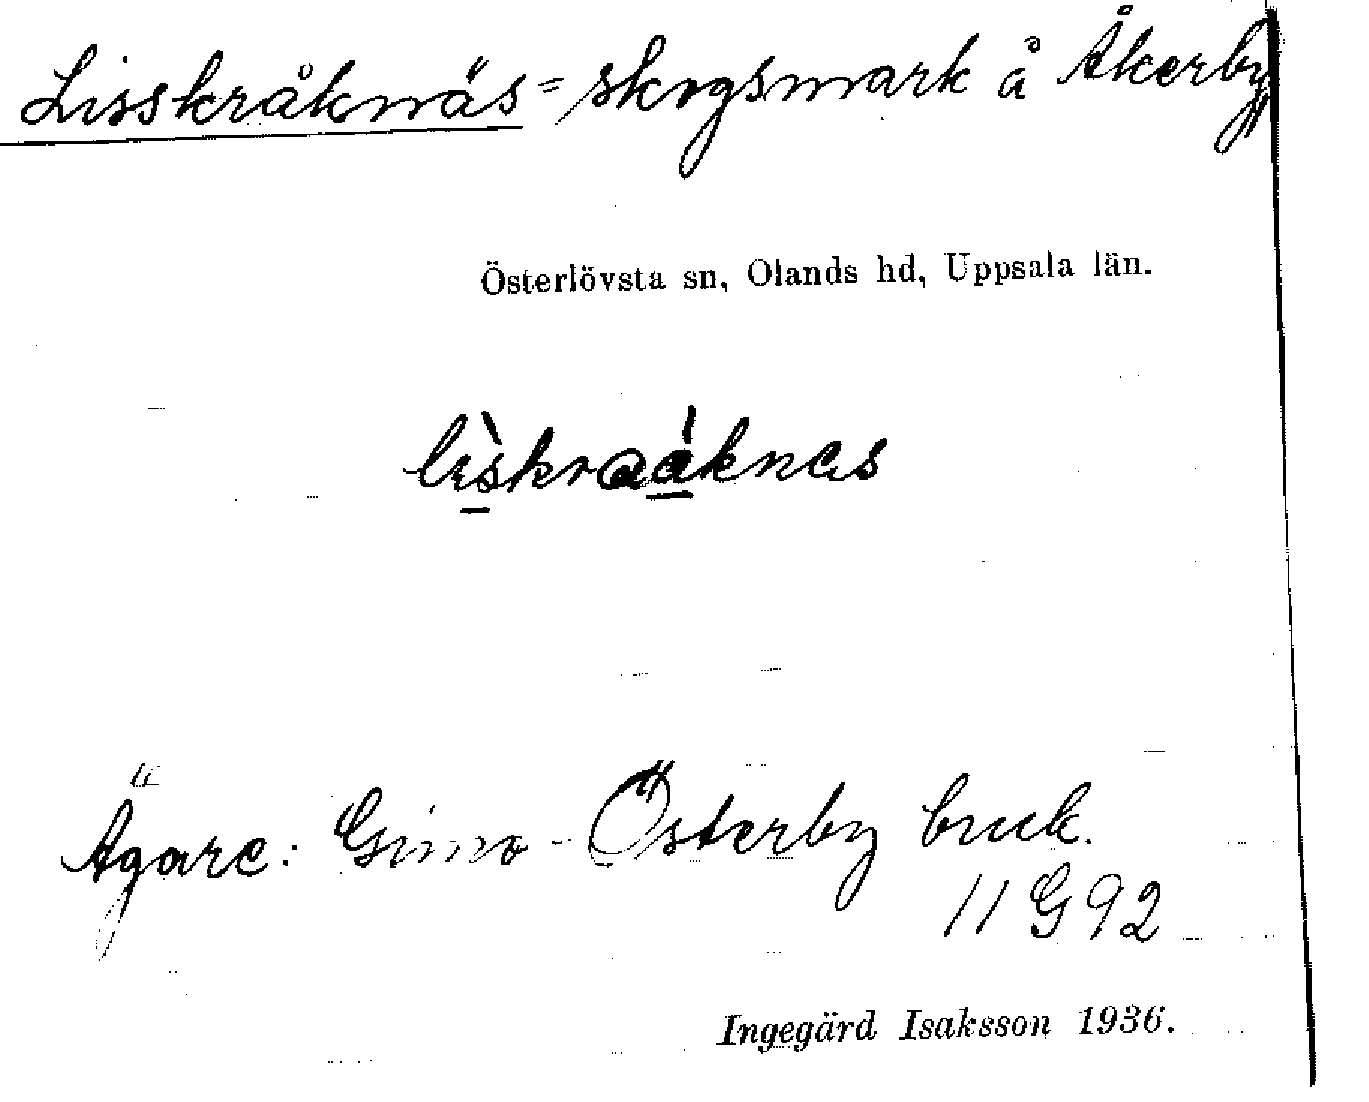 Lisskråknäs = skogsmark å Åkerby
Österlövsta sn, Olands hd, Uppsala län.
Ägare: Gimo-Österby bruk.
11 G 92
Ingegärd Isaksson 1936.